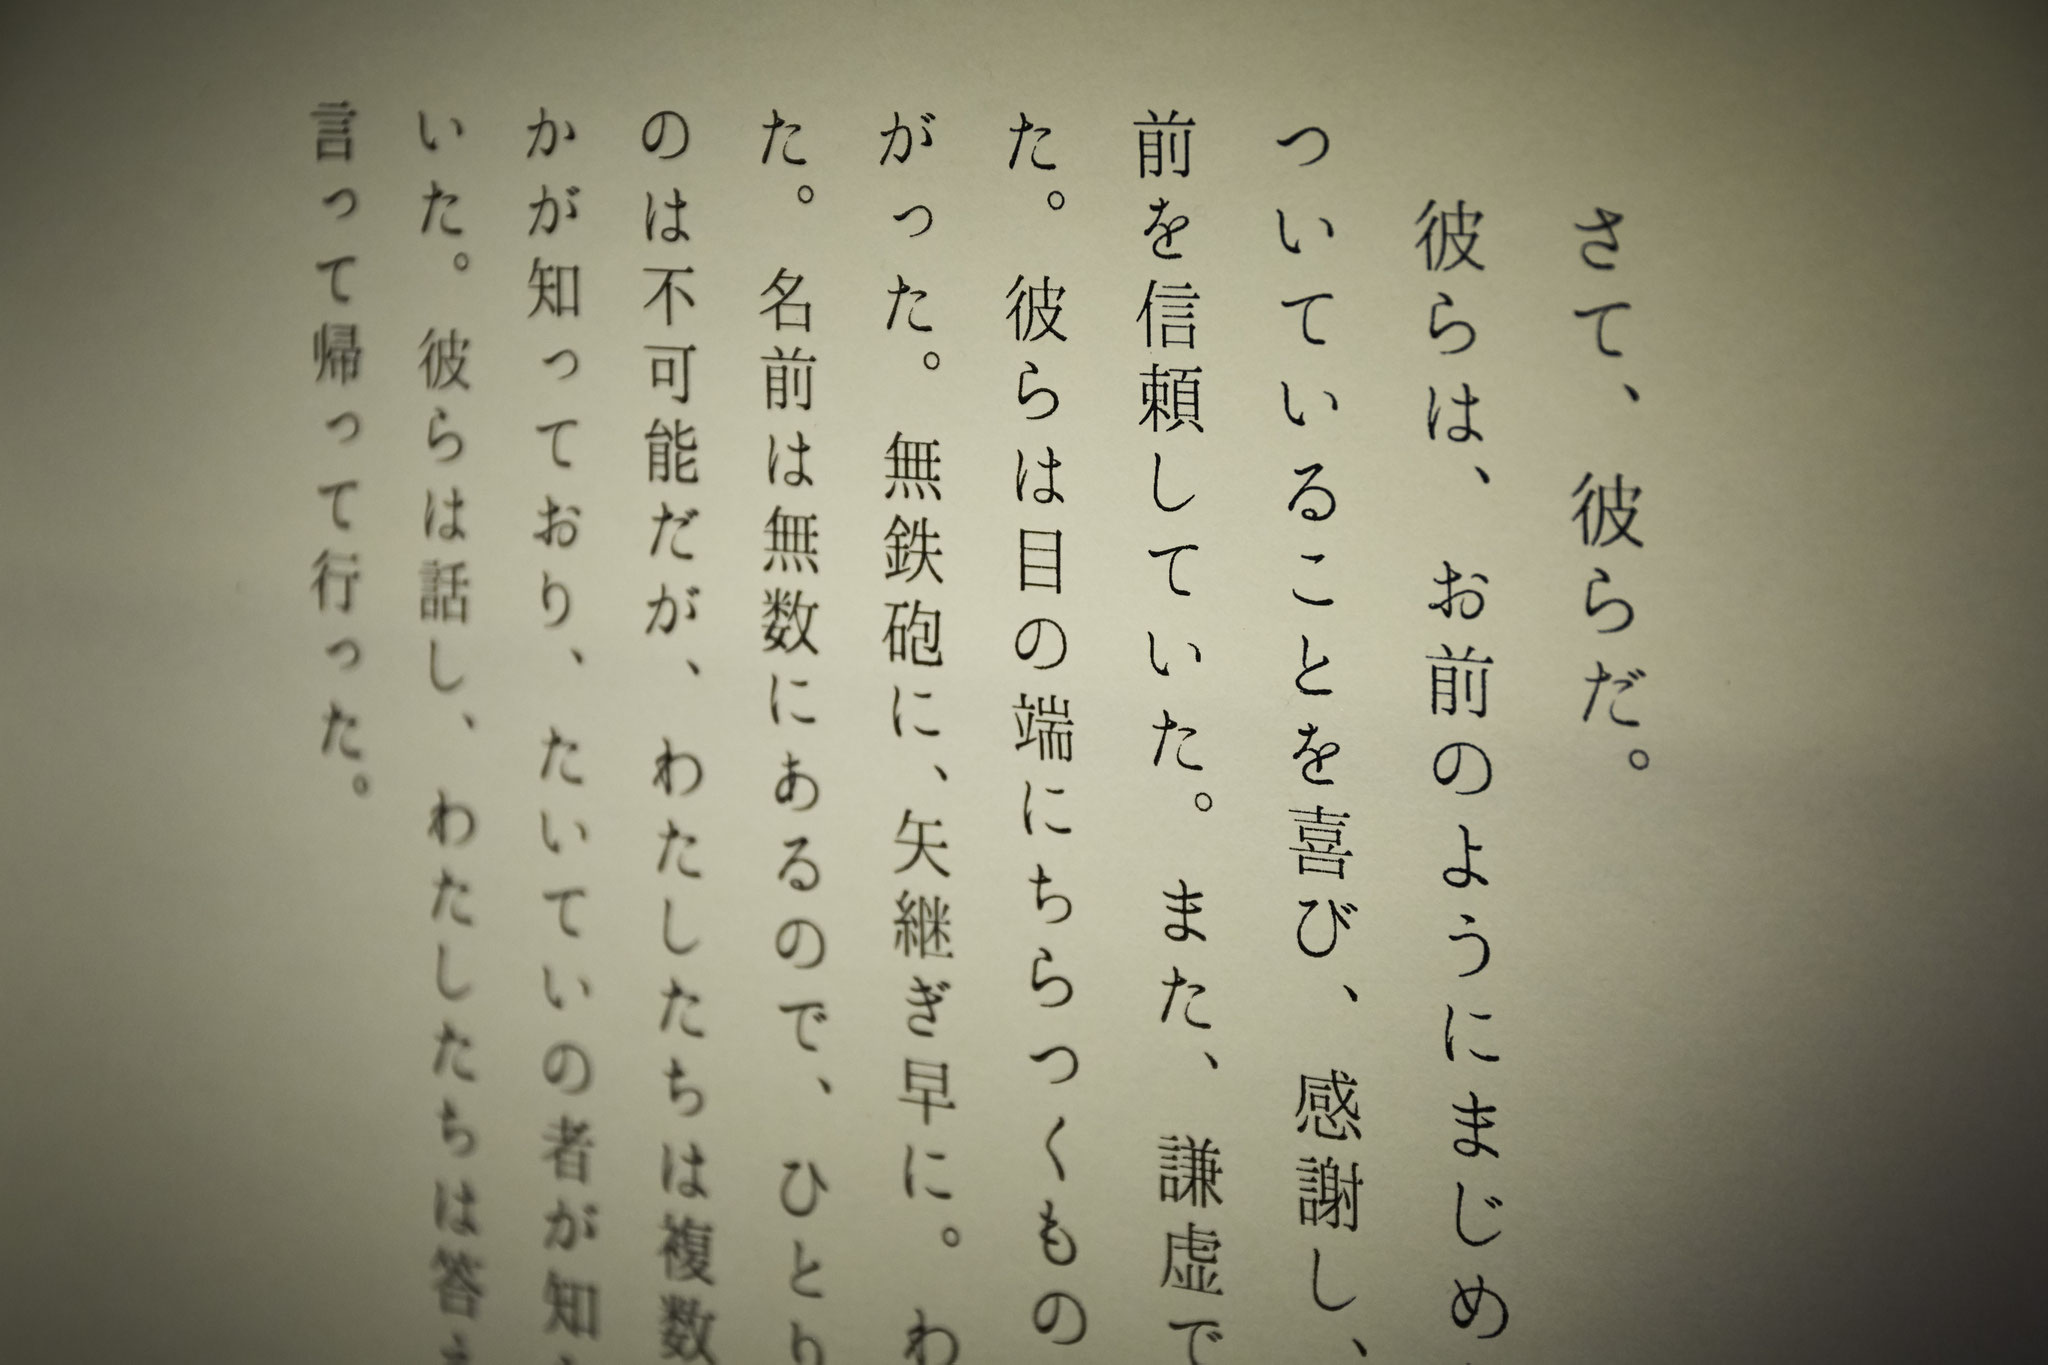 さて、彼らだ。
彼らは、お前のようにまじめ
ついていることを喜び、感謝し、
前を信頼していた。また、謙虚で
た。彼らは目の端にちらつくもの
がった。無鉄砲に、矢継ぎ早に。わ
た。名前は無数にあるので、ひとり
のは不可能だが、わたしたちは複数
かが知っており、たいていの者が知
いた。彼らは話し、わたしたちは答え
言って帰って行った。